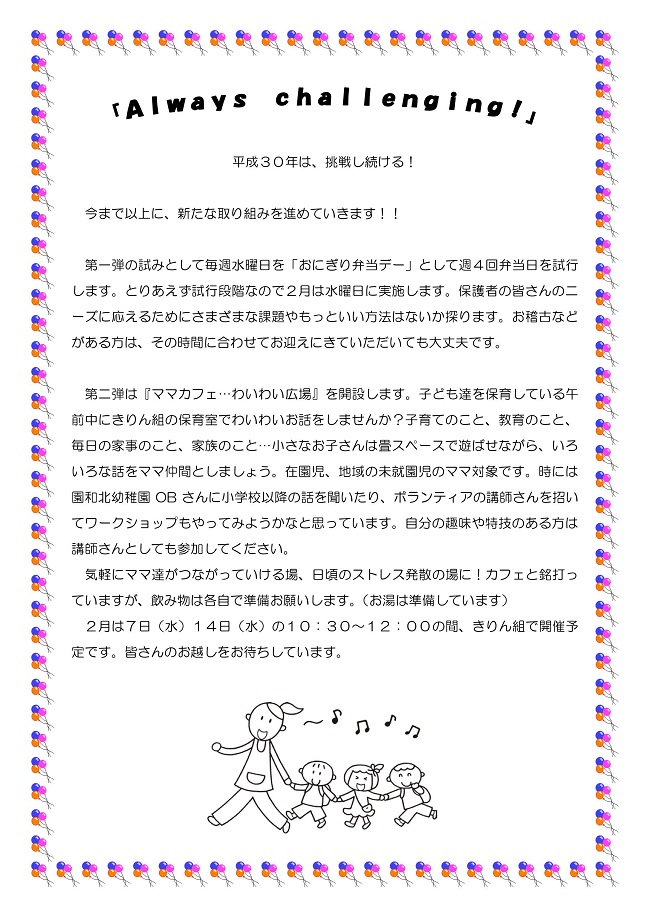 「Always challenging!」
平成３０年は、挑戦し続ける！
今まで以上に、新たな取り組みを進めていきます！！
第一弾の試みとして毎週水曜日を「おにぎり弁当デー」として週４回弁当日を試行
します。とりあえず試行段階なので２月は水曜日に実施します。保護者の皆さんのニ
ーズに応えるためにさまざまな課題やもっといい方法はないか探ります。お稽古など
がある方は、その時間に合わせてお迎えにきていただいても大丈夫です。
第二弾は『ママカフェ…わいわい広場』を開設します。子ども達を保育している午
前中にきりん組の保育室でわいわいお話をしませんか？子育てのこと、教育のこと、
毎日の家事のこと、家族のこと…小さなお子さんは畳スペースで遊ばせながら、いろ
いろな話をママ仲間としましょう。在園児、地域の未就園児のママ対象です。時には
園和北幼稚園 OB さんに小学校以降の話を聞いたり、ボランティアの講師さんを招い
てワークショップもやってみようかなと思っています。自分の趣味や特技のある方は
講師さんとしても参加してください。
気軽にママ達がつながっていける場、日頃のストレス発散の場に！カフェと銘打っ
ていますが、飲み物は各自で準備お願いします。（お湯は準備しています）
２月は７日（水）１４日（水）の１０：３０～１２：００の間、きりん組で開催予
定です。皆さんのお越しをお待ちしています。